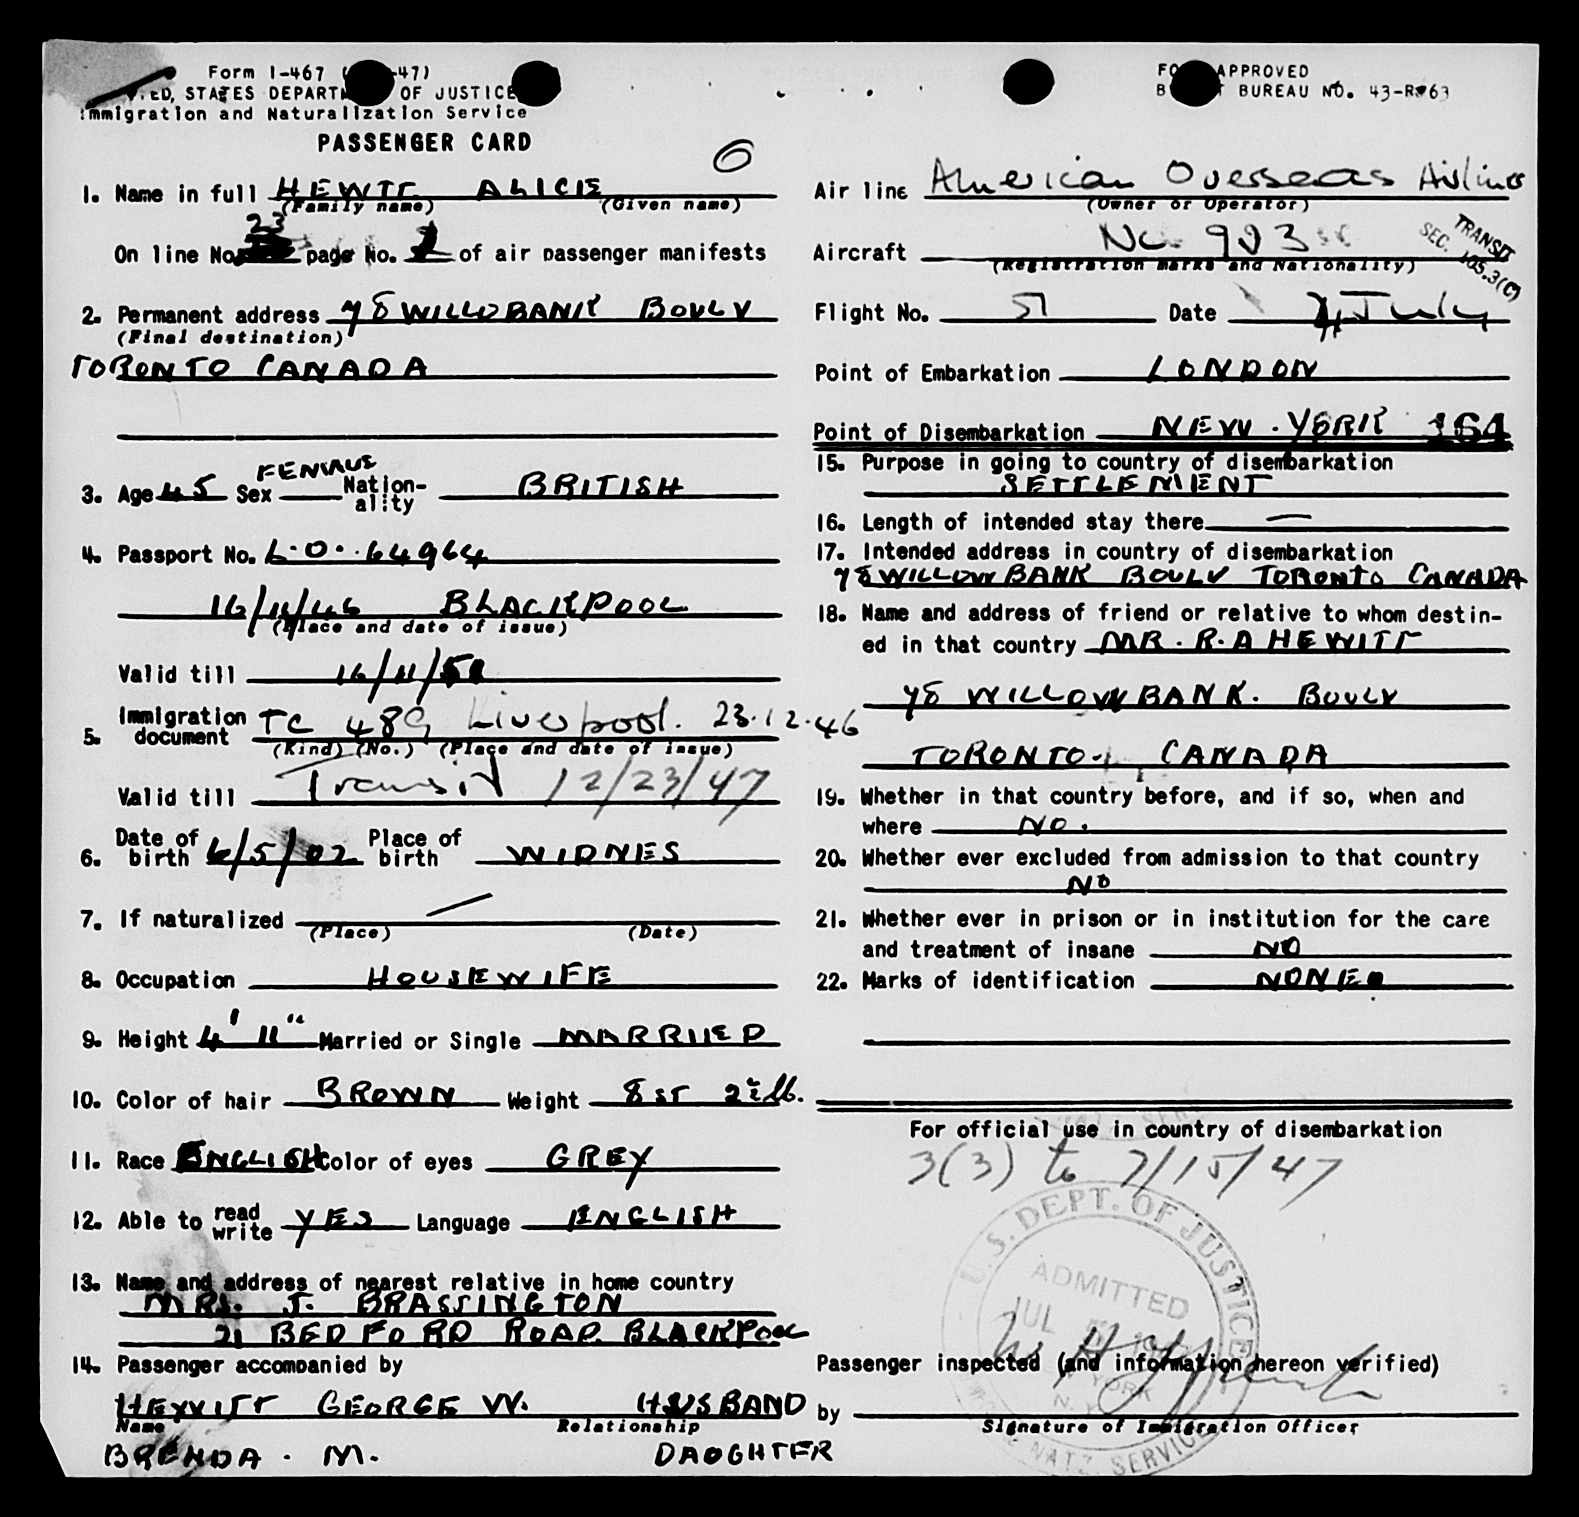 Form I-467 ( -47)
STATES DEPARTM OF JUSTICE
Immigration and Naturalization Service
PASSENGER CARD
1. Name in full HEWITT ALICE
(Family name) (Given name)
On line No. 23 page No. 1 of air passenger manifests
2. Permanent address 98 WILLOBANK BOULV
(Final destination)
TORONTO CANADA
3. Age 45 Sex FEMALE Nationality BRITISH
4. Passport No. L.O. 64964
16/11/46 BLACKPOOL
(Place and date of issue)
Valid till 16/11/51
5. Immigration document TC 489 Liverpool. 23.12.46
(Kind) (No.) (Place and date of issue)
Valid till Transit 12/23/47
6. Date of birth 6/5/02 Place of birth WIDNES
7. If naturalized
(Place) (Date)
8. Occupation HOUSEWIFE
9. Height 4' 11" Married or Single MARRIED
10. Color of hair BROWN Weight 8 ST 2½ lb.
11. Race ENGLISH Color of eyes GREY
12. Able to read write YES Language ENGLISH
13. Name and address of nearest relative in home country
MRS. J. BRASSINGTON
21 BEDFORD ROAD. BLACKPOOL
14. Passenger accompanied by
HEWITT GEORGE W. HUSBAND
Name Relationship
BRENDA. M. DAUGHTER
FO APPROVED
B T BUREAU NO. 43-R063
Air line American Overseas Airlines
(Owner or Operator)
Aircraft NC 903
(Registration marks and Nationality)
TRANSIT
SEC. 105.3(C)
Flight No. 51 Date 4 July
Point of Embarkation LONDON
Point of Disembarkation NEW. YORK 164
15. Purpose in going to country of disembarkation
SETTLEMENT
16. Length of intended stay there —
17. Intended address in country of disembarkation
98 WILLOWBANK BOULV TORONTO CANADA
18. Name and address of friend or relative to whom destin-
ed in that country MR. R. A HEWITT
98 WILLOWBANK. BOULV
TORONTO. CANADA
19. Whether in that country before, and if so, when and
where NO.
20. Whether ever excluded from admission to that country
NO
21. Whether ever in prison or in institution for the care
and treatment of insane NO
22. Marks of identification NONE
For official use in country of disembarkation
3(3) to 7/15/47
U.S. DEPT. OF JUSTICE
ADMITTED
JUL 5
N. Y.
NATZ. SERVICE
Passenger inspected (and information hereon verified)
by
Signature of Immigration Officer